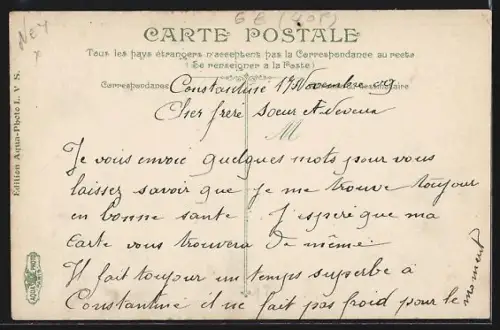 Ney
x
G E (405)
CARTE POSTALE
Tous les pays étrangers n'acceptent pas la Correspondance au recto
(Se renseigner à la Poste)
Correspondance
Constantine 17 Novembre 09
Cher frere soeur et Neveux
M
Je vous envoie quelques mots pour vous
laisser savoir que je me trouve toujour
en bonne sante J'espere que ma
Carte vous trouvera De même
Il fait toujour un temps superbe à
Constantine il ne fait pas froid pour le
moment
Edition Aqua-Photo L. V. S.
AQUA PHOTO